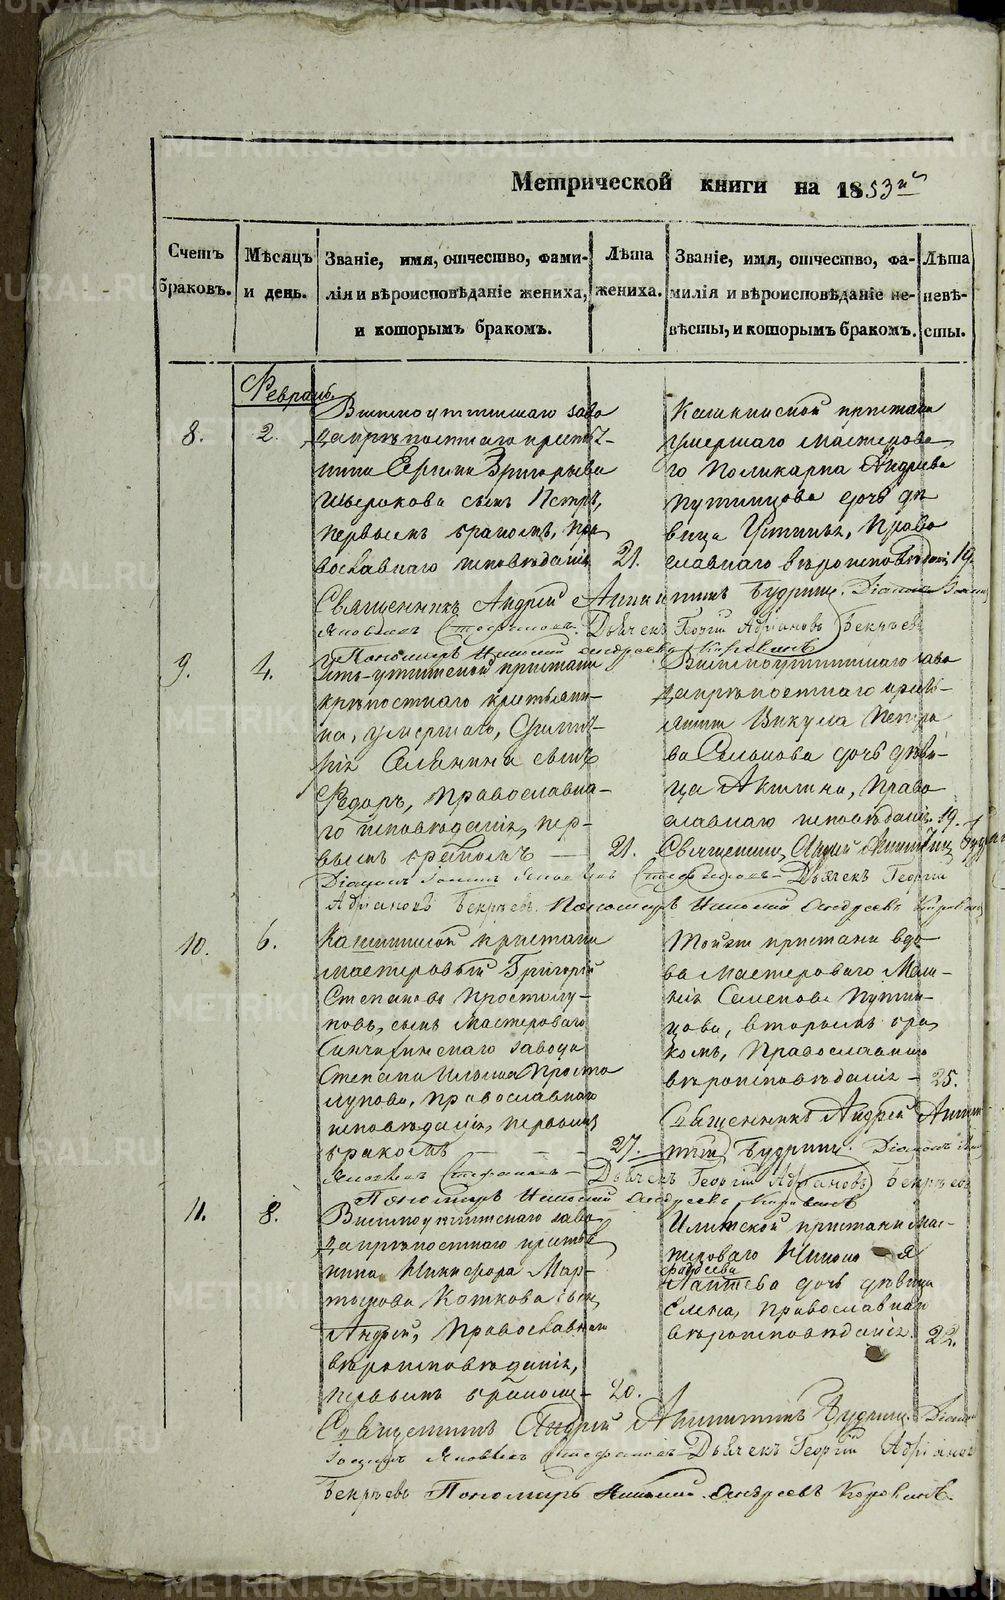 Метрической книги на 1853й
Счетъ браковъ.
Мѣсяцъ и день.
Званіе, имя, отчество, фами-
лія и вѣроисповѣданіе жениха,
и которымъ бракомъ.
Лѣта жениха.
Званіе, имя, отчество, фа-
милія и вѣроисповѣданіе не-
вѣсты, и которымъ бракомъ.
Лѣта невѣ-
сты.
Февраль.
8.
2.
заво
да крѣпостнаго крестья-
нина Сергия Григорьева
сынъ Петръ,
первымъ бракомъ, пра
вославнаго исповѣданія
21.
Кашкинской пристани
умершаго мастерова
го Поликарпа Андреева
Путимцова дочь дѣ
вица Устинья, право
славнаго вѣроисповѣданія
19.
Священникъ Андрей Будрин. Діаконъ Іоаннъ
Яковлевъ Стефановъ. Дьячекъ Георгій Адріановъ Бекрѣевъ
Пономарь Андреевъ Коровинъ
9.
4.
Усть-уткинской пристани
крѣпостнаго крестьяни-
на, умершаго,
сынъ
Ѳедоръ, православна-
го исповѣданія, пер-
вымъ бракомъ
21.
заво
да крѣпостнаго кресть-
янина Викула Петро
ва дочь дѣви-
ца Акилина, право
славнаго исповѣданія.
19.
Священникъ Андрей
Діаконъ Іоаннъ Яковлевъ Стефановъ Дьячекъ Георгій
Адріановъ Бекрѣевъ. Пономарь Андреевъ Коровинъ
10.
6.
Кашкинской пристани
мастеровый Григорій
Степановъ Простолу-
повъ, сынъ мастероваго
завода
Степана Ильина Просто
лупова, православнаго
исповѣданія, первымъ
бракомъ
27.
Тойже пристани вдо
ва мастероваго Мела-
нія Семенова Путим-
цова, вторымъ бра
комъ, православнаго
вѣроисповѣданія
25.
Священникъ Андрей
Будрин. Діаконъ
Яковлевъ Стефановъ Дьячекъ Георгій Адріановъ Бекрѣевъ
Пономарь Андреевъ Коровинъ
11.
8.
заво
да крѣпостнаго крестья
нина Никифора Мар-
Коткова сынъ
Андрей, православнаго
вѣроисповѣданія,
первымъ бракомъ
20.
Илимской пристани мас-
тероваго
Ѳадѣева
Лаптева дочь дѣвица
Елена, православнаго
вѣроисповѣданія.
22.
Священникъ Андрей Будрин. Діаконъ
Іоаннъ Яковлевъ Стефановъ Дьячекъ Георгій Адріановъ
Бекрѣевъ Пономарь Андреевъ Коровинъ.